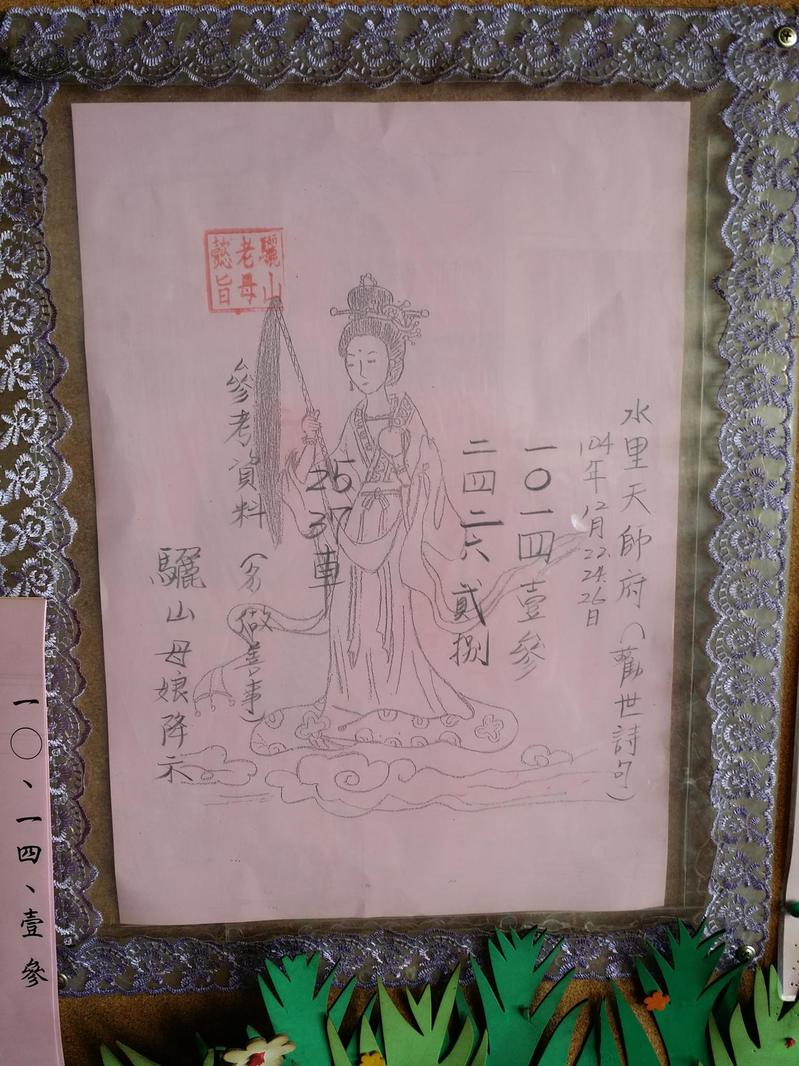 水里天師府(勸世詩句)
104年12月22.24.26日
一〇一四壹參
二四二六貳捌
25
37
車
驪山
老母
懿旨
參考資料(多做善事)
驪山母娘降示
一〇、一四、壹參